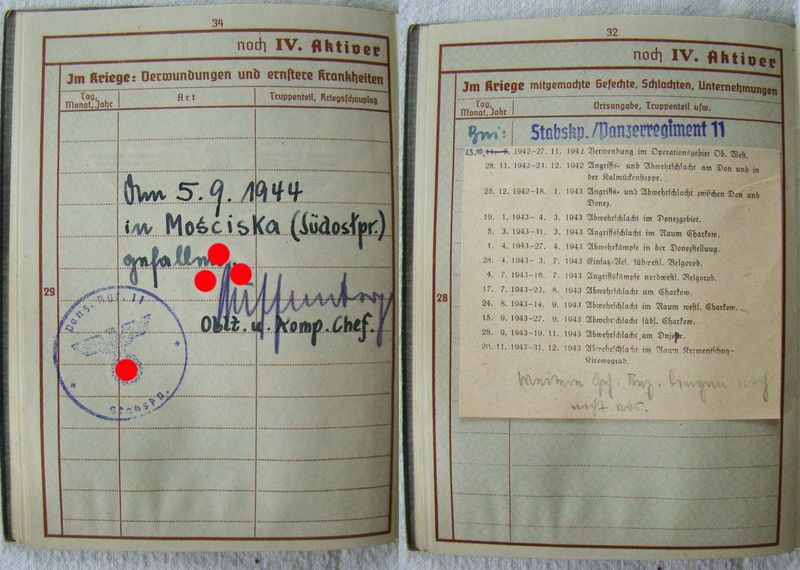 34
noch IV. Aktiver
Im Kriege: Verwundungen und ernstere Krankheiten
Tag, Monat, Jahr
Art
Truppenteil, Kriegsschauplatz
Am 5.9.1944
in Mościska (Südostpr.)
gefallen.
Oblt. u. Komp. Chef.
29
Panz. Rgt. 11
Stabskp.
32
noch IV. Aktiver
Im Kriege mitgemachte Gefechte, Schlachten, Unternehmungen
Tag, Monat, Jahr
Ortsangabe, Truppenteil usw.
Bei: Stabskp./Panzerregiment 11
1942-27. 11. 1942 Verwendung im Operationsgebiet Ob. West.
28. 11. 1942-24. 12. 1942 Angriffs- und Abwehrschlacht am Don und in
der Kalmückensteppe.
25. 12. 1942-18. 1. 1943 Angriffs- und Abwehrschlacht zwischen Don und
Donez.
19. 1. 1943- 4. 3. 1943 Abwehrschlacht im Donezgebiet.
5. 3. 1943-31. 3. 1943 Angriffsschlacht im Raum Charkow.
1. 4. 1943-27. 4. 1943 Abwehrkämpfe in der Donezstellung.
28. 4. 1943- 3. 7. 1943 Einsatz-Res. südwestl. Belgorod.
4. 7. 1943-16. 7. 1943 Angriffskämpfe nordwestl. Belgorod.
17. 7. 1943-23. 8. 1943 Abwehrschlacht um Charkow.
24. 8. 1943-14. 9. 1943 Abwehrschlacht im Raum westl. Charkow.
15. 9. 1943-27. 9. 1943 Abwehrschlacht südl. Charkow.
28. 9. 1943-19. 11. 1943 Abwehrschlacht am Dnjepr.
20. 11. 1943-31. 12. 1943 Abwehrschlacht im Raum Krementschug-
Kirowograd.
Weitere Gef. Bez. liegen noch
nicht vor.
28